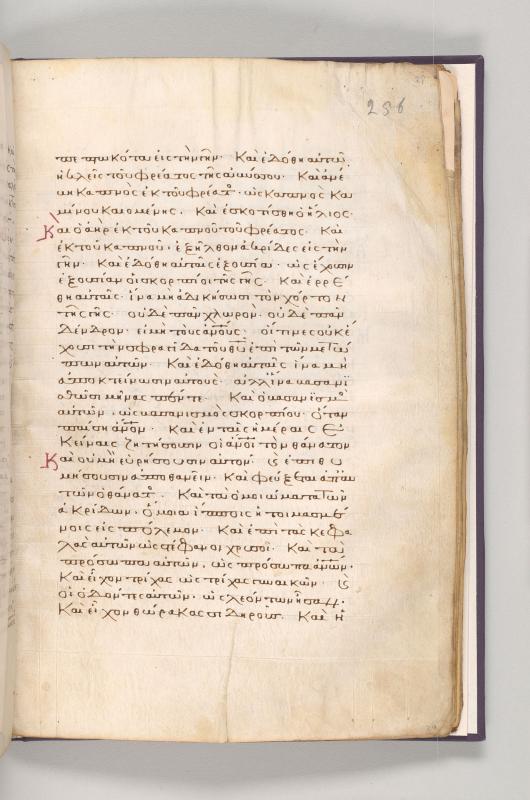 256
πεπτωκότα εἰς τὴν γῆν. Καὶ ἐδόθη αὐτῶ
ἡ κλεὶς τοῦ φρέατος τῆς ἀβύσσου. Καὶ ἀνέ
βη καπνὸς ἐκ τοῦ φρέατ. ὡς καπνὸς κα
μίνου καιομένης. Καὶ ἐσκοτίσθη ὁ ἥλιος.
Καὶ ὁ ἀὴρ ἐκ τοῦ καπνοῦ τοῦ φρέατος. Καὶ
ἐκ τοῦ καπνοῦ. ἐξῆλθον ἀκρίδες εἰς τὴν
γῆν. Καὶ ἐδόθη αὐταῖς ἐξουσία. ὡς ἔχουσιν
ἐξουσίαν οἱ σκορπίοι τῆς γῆς. Καὶ ἐρρέ
θη αὐταῖς. ἵνα μὴ ἀδικήσωσι τὸν χόρτον
τῆς γῆς. οὐδὲ πᾶν χλωρὸν. οὐδὲ πᾶν
δένδρον. εἰ μὴ τοὺς ἀνους. οἵτινες οὐκ ἔ
χουσι τὴν σφραγίδα τοῦ θυ ἐπὶ τῶν μετώ
πων αὐτῶν. Καὶ ἐδόθη αὐταῖς ἵνα μὴ
ἀποκτείνωσιν αὐτοὺς. ἀλλ' ἵνα βασανι
σθῶσι μῆνας πέντε. Καὶ ὁ βασανισμὸ
αὐτῶν, ὡς βασανισμὸς σκορπίου. ὅταν
παίση ἀνον. Καὶ ἐν ταῖς ἡμέραις ἐ
κείναις ζητήσουσιν οἱ ἀνοι τὸν θάνατον
Καὶ οὐ μὴ εὑρήσουσιν αὐτόν. ϗ ἐπιθυ
μήσουσιν ἀποθανεῖν. Καὶ φεύξεται ἀπ' αυ
τῶν ὁ θάνατ. Καὶ τὰ ὁμοιώματα τῶν
ἀκρίδων. ὅμοια ἵπποις ἡτοιμασμέ
νοις εἰς πόλεμον. Καὶ ἐπὶ τὰς κεφα
λὰς αὐτῶν ὡς στέφανοι χρυσοῖ. Καὶ τὰ
πρόσωπα αὐτῶν, ὡς πρόσωπα ἀνων.
Καὶ εἶχον τρίχας ὡς τρίχας γυναικῶν. ϗ
οἱ ὀδόντες αὐτῶν. ὡς λεόντων ἦσαν.
Καὶ εἶχον θώρακας σιδηροῦς. Καὶ ἡ